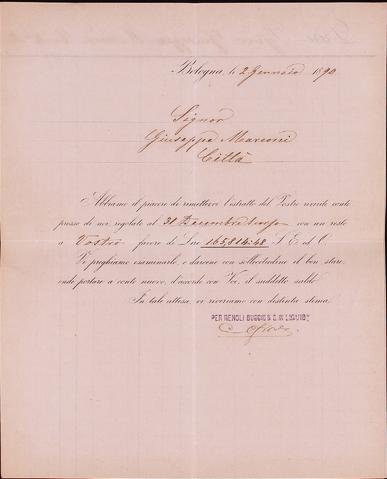 Bologna, li 2 Gennaio 1890
Signor
Giuseppe Marconi
Città
Abbiamo il piacere di rimettervi l'estratto del Vostro pregiato conto
presso di noi, regolato al 31 Dicembre scorso con un resto
a Vostro favore di Lire 165,814:48 S. E. ed O.
Vi preghiamo esaminarlo, e darcene con sollecitudine il ben stare,
onde portare a conto nuovo, d'accordo con Voi, il suddetto saldo.
In tale attesa, vi riveriamo con distinta stima.
PER RENOLI BUGGIO & C. IN LIQUID.